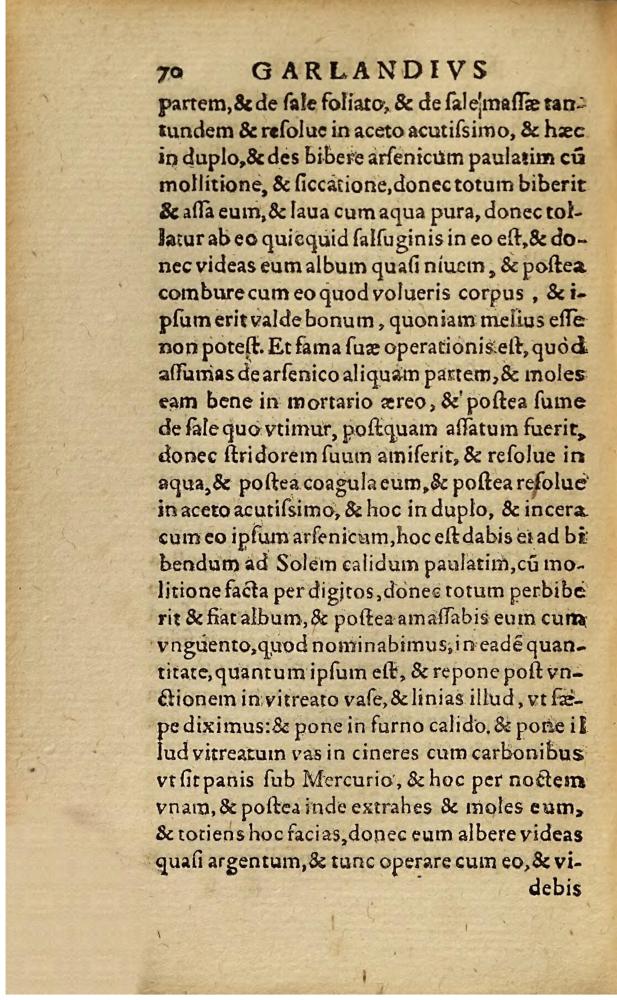 70 GARLANDIVS
partem, & de ſale foliato, & de ſale maſſæ tan-
tundem & reſolue in aceto acutiſsimo, & hæc
in duplo, & des bibere arſenicum paulatim cū
mollitione, & ſiccatione, donec totum biberit
& aſſa eum, & laua cum aqua pura, donec tol-
latur ab eo quicquid ſalſuginis in eo eſt, & do-
nec videas eum album quaſi niuem, & poſtea
combure cum eo quod volueris corpus, & i-
pſum erit valde bonum, quoniam melius eſſe
non poteſt. Et fama ſuæ operationis eſt, quòd
aſſumas de arſenico aliquam partem, & moles
eam bene in mortario æreo, & poſtea ſume
de ſale quo vtimur, poſtquam aſſatum fuerit,
donec ſtridorem ſuum amiſerit, & reſolue in
aqua, & poſtea coagula eum, & poſtea reſolue
in aceto acutiſsimo, & hoc in duplo, & incera
cum eo ipſum arſenicum, hoc eſt dabis ei ad bi
bendum ad Solem calidum paulatim, cū mo-
litione facta per digitos, donec totum perbibe
rit & fiat album, & poſtea amaſſabis eum cum
vnguento, quod nominabimus, in eadē quan-
titate, quantum ipſum eſt, & repone poſt vn-
ctionem in vitreato vaſe, & linias illud, vt ſæ-
pe diximus: & pone in furno calido. & pone il
lud vitreatum vas in cineres cum carbonibus
vt ſit panis ſub Mercurio, & hoc per noctem
vnam, & poſtea inde extrahes & moles eum,
& totiens hoc facias, donec eum albere videas
quaſi argentum, & tunc operare cum eo, & vi-
debis